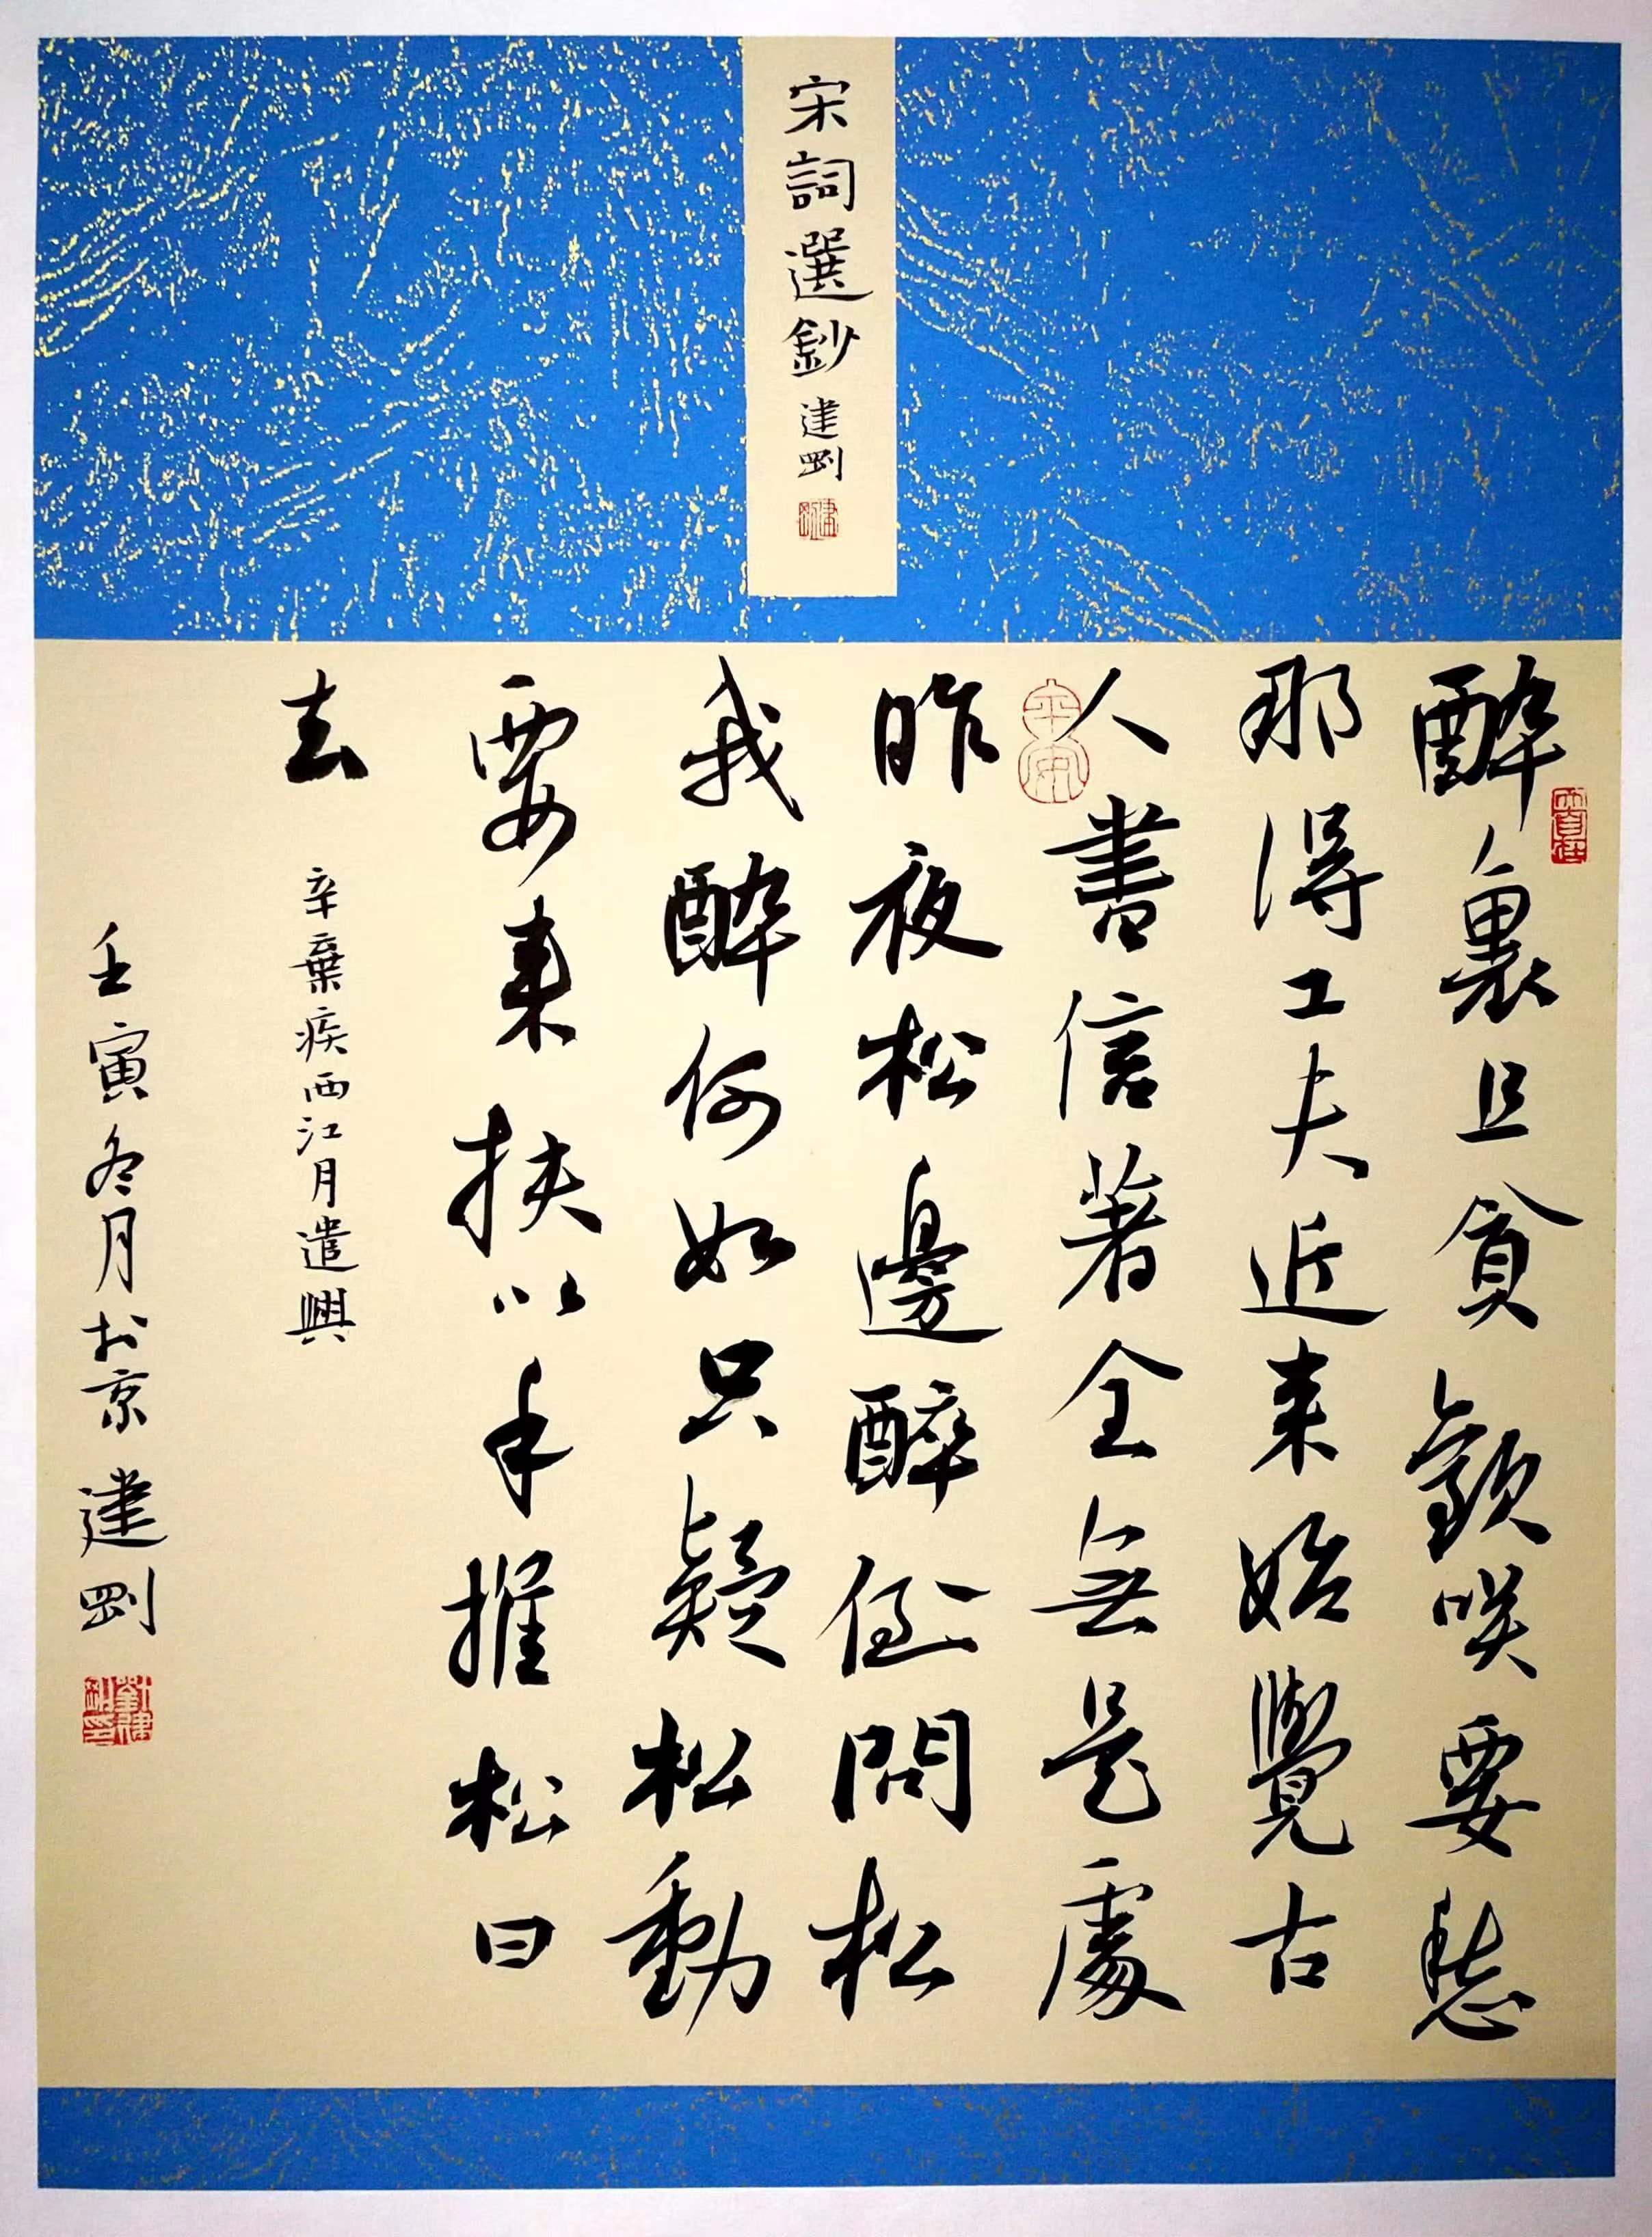 宋詞選鈔
建剛
建剛
酔裏且貪歡咲要愁
那得工夫近来始覺古
人書信著全無是處
昨夜松邊醉倒問松
我酔何如只疑松動
要来扶以手推松曰
去
辛棄疾西江月遣興
壬寅冬月於京 建剛
平安
劉建剛印